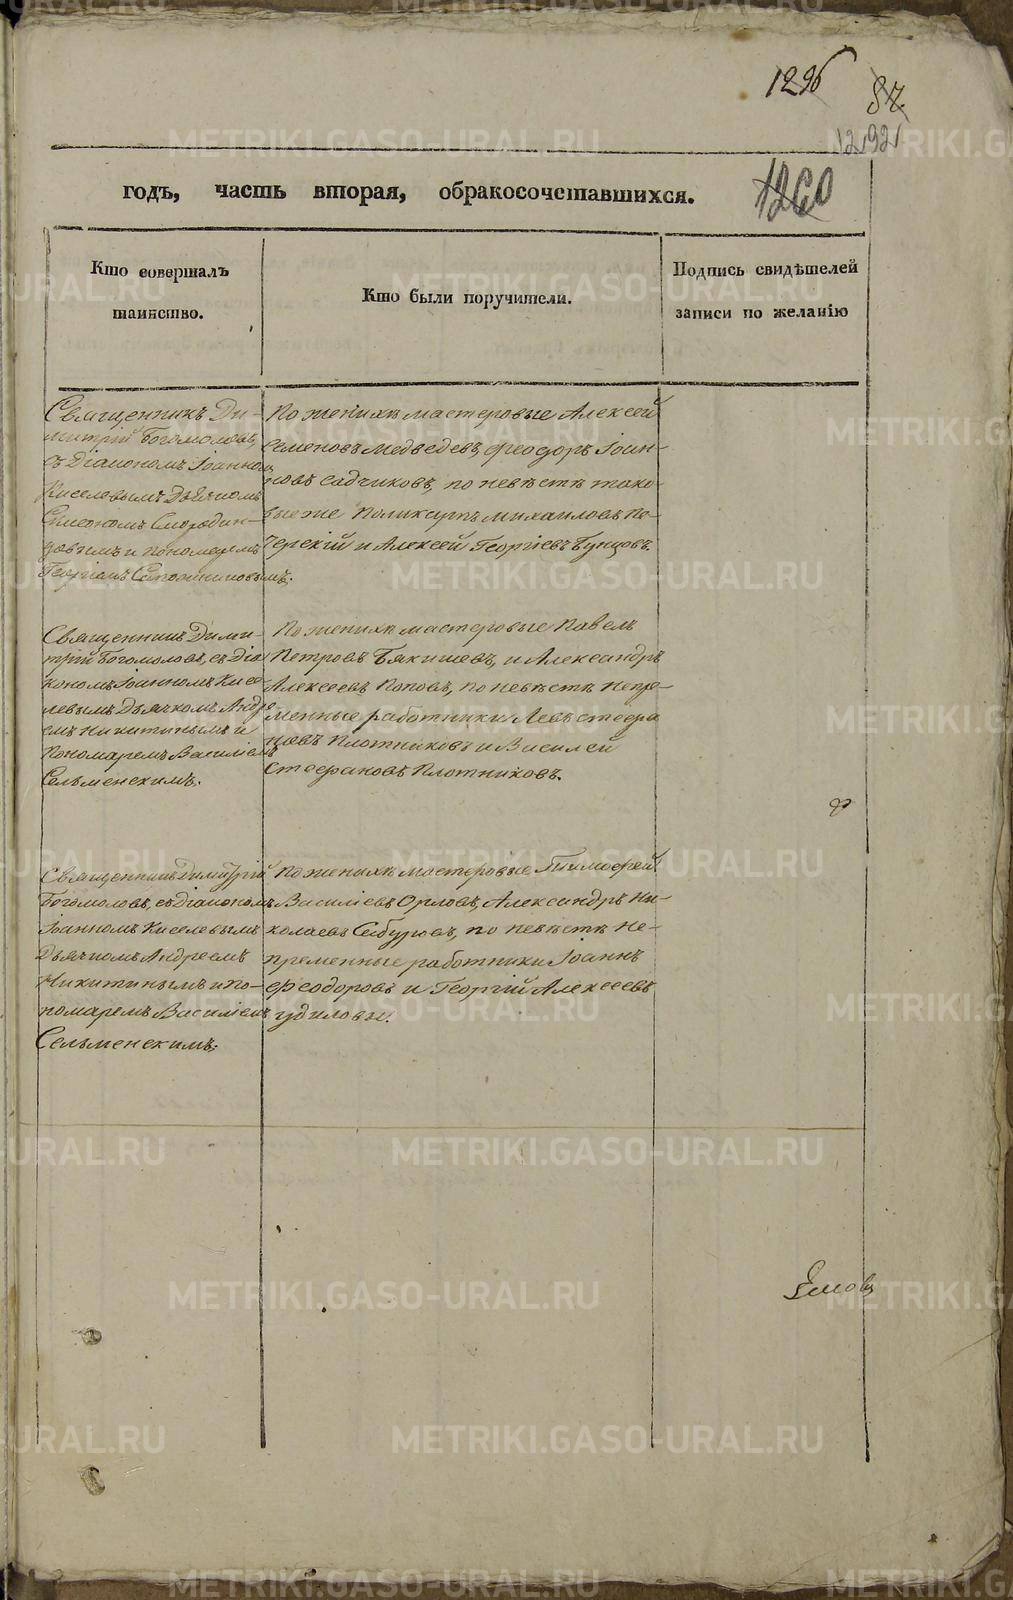 1296
87.
1292
1260
годъ, часть вторая, обракосочетавшихся.
Кто совершалъ таинство.
Кто были поручители.
Подпись свидѣтелей записи по желанію
Священникъ Ди-
митрій Богомоловъ,
съ Діакономъ Іоанном
Киселевымъ Дьячкомъ
Симеономъ Смородин-
цовымъ и пономаремъ
Георгіемъ Сапожниковымъ.
По женихѣ мастеровые Алексей
Семеновъ Медведевъ, Феодоръ Іоан-
новъ Садчиковъ, по невѣстѣ тако-
вые же Поликарпъ Михаиловъ Пе-
черскій и Алексей Георгіевъ Бунцовъ.
Священникъ Дими-
трій Богомоловъ, съ Діа
кономъ Іоанномъ Кисе-
левымъ Дьячкомъ Андре
емъ Никитинымъ и
Пономаремъ Василіемъ
Сельменскимъ.
По женихѣ мастеровые Павелъ
Петровъ Бякишевъ, и Александръ
Алексеевъ Поповъ, по невѣстѣ непре-
менные работники Левъ Стефа
новъ Плотниковъ и Василей
Стефановъ Плотниковъ.
Священникъ Димитрій
Богомоловъ, съ Діакономъ
Іоанномъ Киселевымъ
Дьячкомъ Андреемъ
Никитинымъ и по-
номаремъ Василіемъ
Сельменскимъ.
По женихѣ мастеровые Тимофей
Василіевъ Орловъ, Александръ Ни-
колаевъ Сабуровъ, по невѣстѣ не-
пременные работники Іоаннъ
Феодоровъ и Георгій Алексеевъ
Гудиловы.
METRIKI.GASO-URAL.RU